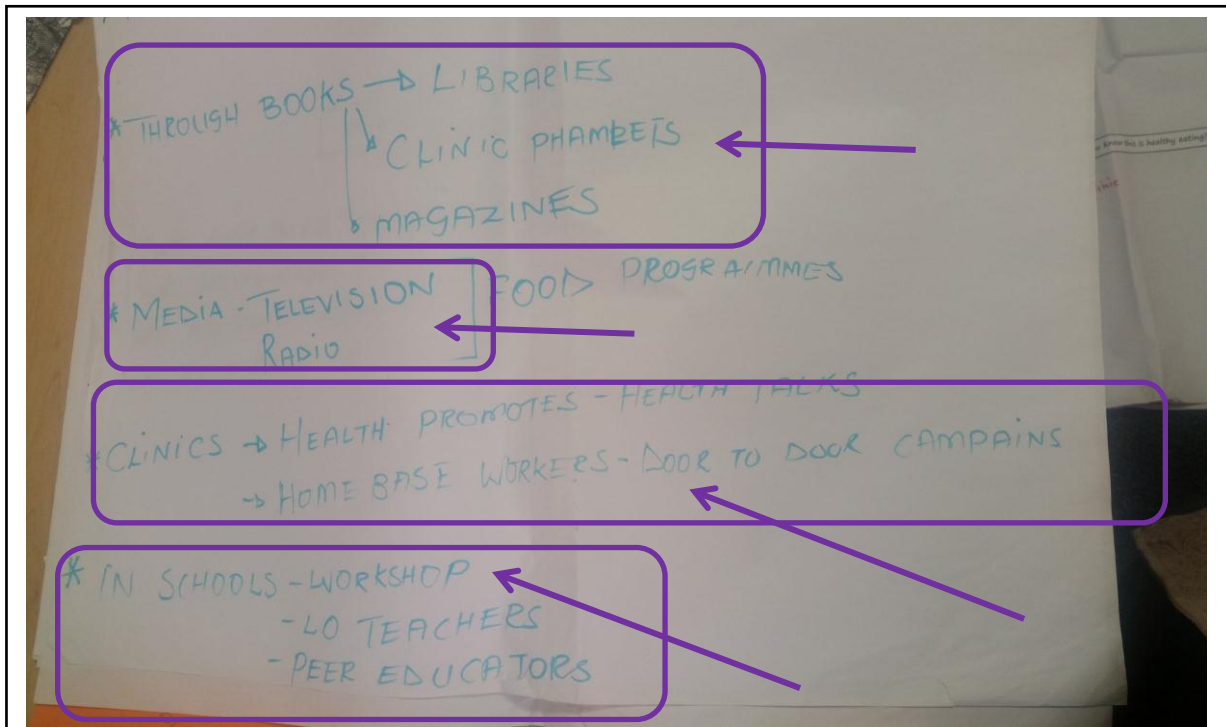 * THROUGH BOOKS → LIBRARIES
CLINIC PHAMLETS
MAGAZINES
* MEDIA - TELEVISION ] FOOD PROGRAMMES
RADIO
* CLINICS → HEALTH PROMOTES - HEALTH TALKS
→ HOME BASE WORKERS - DOOR TO DOOR CAMPAINS
* IN SCHOOLS - WORKSHOP
- LO TEACHERS
- PEER EDUCATORS
know this is healthy eating?